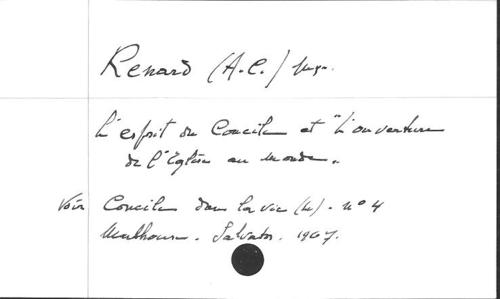 Renard (A.C.) Mgr.
L'esprit du Concile et "L'ouverture
de l'Eglise au Monde".
Voir Concile dans la vie (Le) - n° 4
Mulhouse. Salvator. 1967.